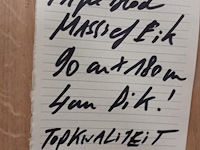 MASSief Eik
90 cm x 180 cm
4cm Dik.!
TOPKWALITEIT